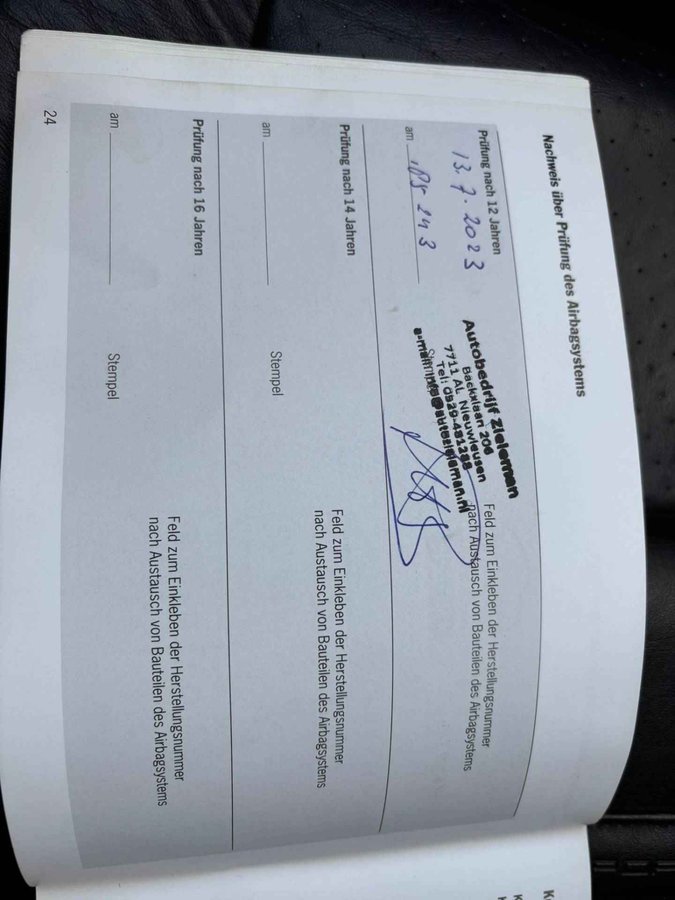 Nachweis über Prüfung des Airbagsystems
Prüfung nach 12 Jahren
13.7.2023
am
185 243
Autobedrijf Zieleman
Backxlaan 206
7711 AL Nieuwleusen
Tel: 0529-481288
e-mail:
Feld zum Einkleben der Herstellungsnummer
nach Austausch von Bauteilen des Airbagsystems
Prüfung nach 14 Jahren
am
Stempel
Feld zum Einkleben der Herstellungsnummer
nach Austausch von Bauteilen des Airbagsystems
Prüfung nach 16 Jahren
am
Stempel
Feld zum Einkleben der Herstellungsnummer
nach Austausch von Bauteilen des Airbagsystems
24